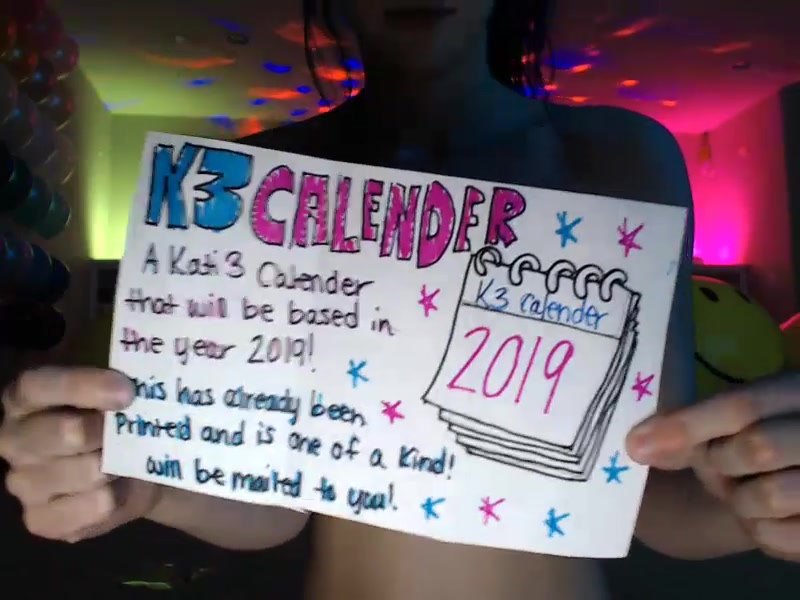 K3 CALENDER
A Kati3 Calender
that will be based in
the year 2019!
This has already been
Printed and is one of a kind!
will be mailed to you!
K3 calender
2019